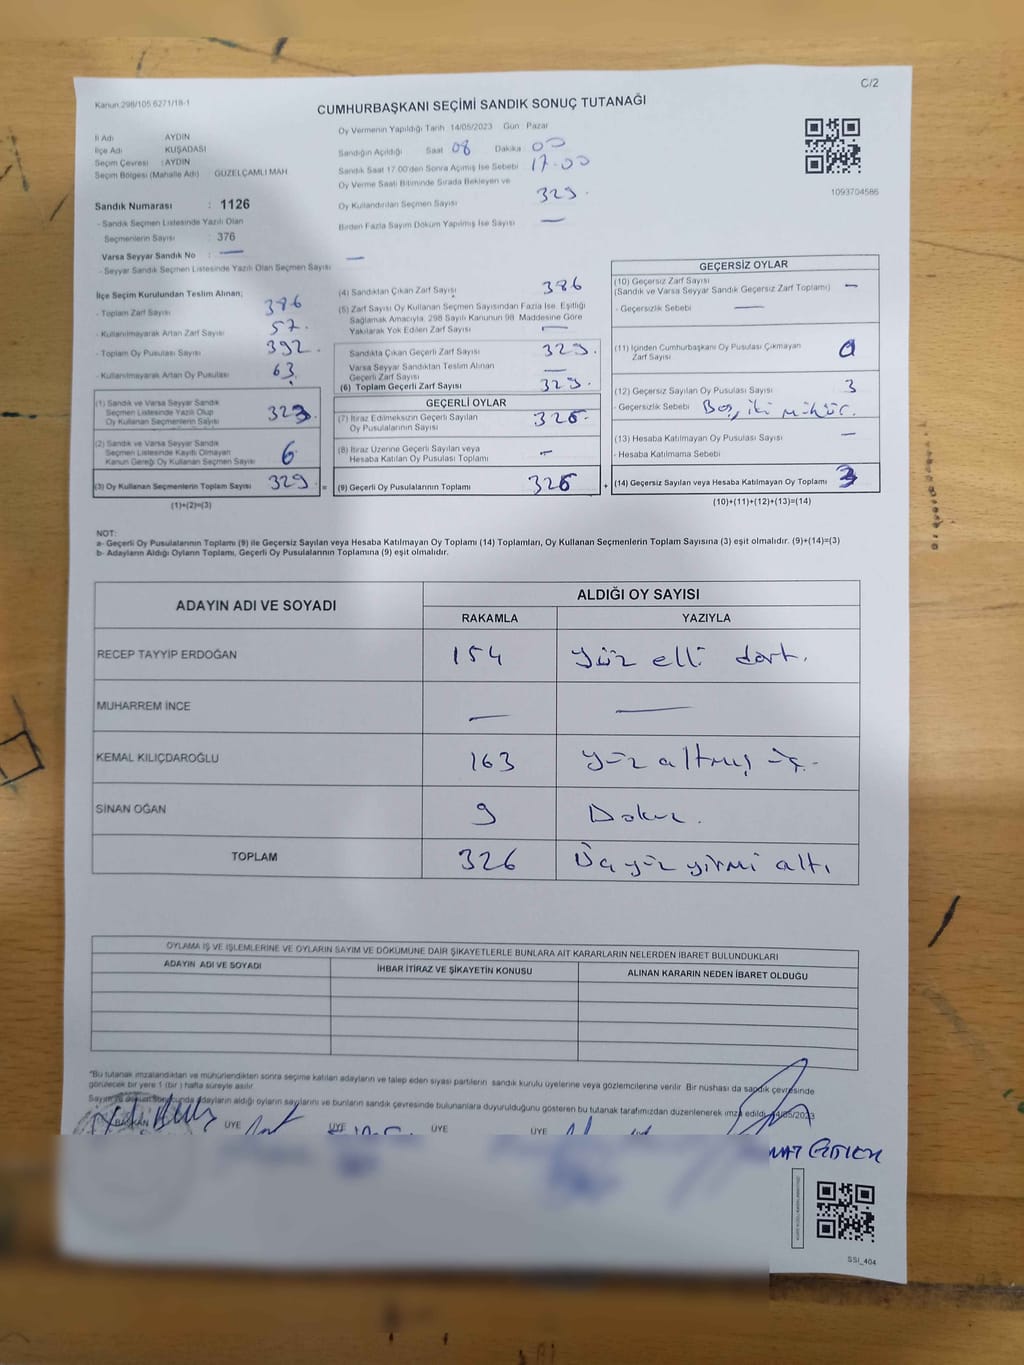 C/2
Kanun:298/105.6271/18-1
CUMHURBAŞKANI SEÇİMİ SANDIK SONUÇ TUTANAĞI
İl Adı AYDIN
İlçe Adı KUŞADASI
Seçim Çevresi : AYDIN
Seçim Bölgesi (Mahalle Adı) GÜZELÇAMLI MAH.
Oy Vermenin Yapıldığı Tarih 14/05/2023 Gün Pazar
Sandığın Açıldığı Saat 08 Dakika 00
Sandık Saat 17:00'den Sonra Açılmış İse Sebebi 17.00
Oy Verme Saati Bitiminde Sırada Bekleyen ve
Oy Kullandırılan Seçmen Sayısı 329.
Birden Fazla Sayım Döküm Yapılmış İse Sayısı —
1093704586
Sandık Numarası : 1126
- Sandık Seçmen Listesinde Yazılı Olan
Seçmenlerin Sayısı : 376
Varsa Seyyar Sandık No : —
- Seyyar Sandık Seçmen Listesinde Yazılı Olan Seçmen Sayısı —
İlçe Seçim Kurulundan Teslim Alınan;
- Toplam Zarf Sayısı 386
- Kullanılmayarak Artan Zarf Sayısı 57.
- Toplam Oy Pusulası Sayısı 392.
- Kullanılmayarak Artan Oy Pusulası 63
(1) Sandık ve Varsa Seyyar Sandık
Seçmen Listesinde Yazılı Olup
Oy Kullanan Seçmenlerin Sayısı 323.
(2) Sandık ve Varsa Seyyar Sandık
Seçmen Listesinde Kayıtlı Olmayan
Kanun Gereği Oy Kullanan Seçmen Sayısı 6
(3) Oy Kullanan Seçmenlerin Toplam Sayısı 329 =
(1)+(2)=(3)
(4) Sandıktan Çıkan Zarf Sayısı 386
(5) Zarf Sayısı Oy Kullanan Seçmen Sayısından Fazla İse, Eşitliği
Sağlamak Amacıyla, 298 Sayılı Kanunun 98. Maddesine Göre
Yakılarak Yok Edilen Zarf Sayısı —
Sandıkta Çıkan Geçerli Zarf Sayısı 329.
Varsa Seyyar Sandıktan Teslim Alınan
Geçerli Zarf Sayısı —
(6) Toplam Geçerli Zarf Sayısı 329.
GEÇERLİ OYLAR
(7) İtiraz Edilmeksizin Geçerli Sayılan
Oy Pusulalarının Sayısı 326.
(8) İtiraz Üzerine Geçerli Sayılan veya
Hesaba Katılan Oy Pusulası Toplamı —
(9) Geçerli Oy Pusulalarının Toplamı 326 +
GEÇERSİZ OYLAR
(10) Geçersiz Zarf Sayısı
(Sandık ve Varsa Seyyar Sandık Geçersiz Zarf Toplamı) —
- Geçersizlik Sebebi —
(11) İçinden Cumhurbaşkanı Oy Pusulası Çıkmayan
Zarf Sayısı 0
(12) Geçersiz Sayılan Oy Pusulası Sayısı 3
- Geçersizlik Sebebi Boş, iki mühür.
(13) Hesaba Katılmayan Oy Pusulası Sayısı —
- Hesaba Katılmama Sebebi
(14) Geçersiz Sayılan veya Hesaba Katılmayan Oy Toplamı 3
(10)+(11)+(12)+(13)=(14)
NOT:
a- Geçerli Oy Pusulalarının Toplamı (9) ile Geçersiz Sayılan veya Hesaba Katılmayan Oy Toplamı (14) Toplamları, Oy Kullanan Seçmenlerin Toplam Sayısına (3) eşit olmalıdır. (9)+(14)=(3)
b- Adayların Aldığı Oyların Toplamı, Geçerli Oy Pusulalarının Toplamına (9) eşit olmalıdır.
ADAYIN ADI VE SOYADI ALDIĞI OY SAYISI
RAKAMLA YAZIYLA
RECEP TAYYİP ERDOĞAN 154 Yüz elli dört.
MUHARREM İNCE — —
KEMAL KILIÇDAROĞLU 163 Yüz altmış üç.
SİNAN OĞAN 9 Dokuz.
TOPLAM 326 Üç yüz yirmi altı
OYLAMA İŞ VE İŞLEMLERİNE VE OYLARIN SAYIM VE DÖKÜMÜNE DAİR ŞİKAYETLERLE BUNLARA AİT KARARLARIN NELERDEN İBARET BULUNDUKLARI
ADAYIN ADI VE SOYADI İHBAR İTİRAZ VE ŞİKAYETİN KONUSU ALINAN KARARIN NEDEN İBARET OLDUĞU
*Bu tutanak imzalandıktan ve mühürlendikten sonra seçime katılan adayların ve talep eden siyasi partilerin sandık kurulu üyelerine veya gözlemcilerine verilir. Bir nüshası da sandık çevresinde
görülecek bir yere 1 (bir) hafta süreyle asılır.
adayların aldığı oyların sayılarını ve bunların sandık çevresinde bulunanlara duyurulduğunu gösteren bu tutanak tarafımızdan düzenlenerek imza edildi. 14/05/2023
BAŞKAN ÜYE ÜYE ÜYE ÜYE
SSI_404